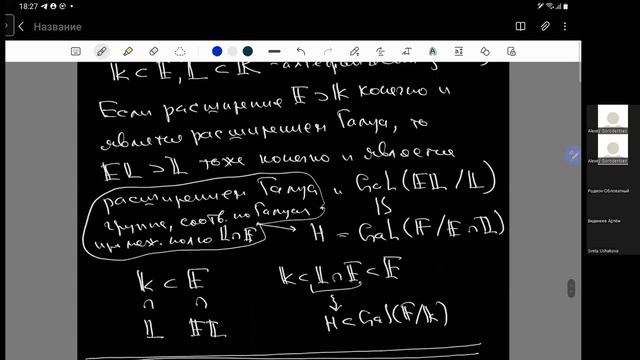 18:27
Название
𝕜 ⊂ 𝔽, 𝕃 ⊂ 𝕂
Если расширение 𝔽 ⊃ 𝕜 конечно и
является расширением Галуа, то
𝔽𝕃 ⊃ 𝕃 тоже конечно и является
расширением Галуа и Gal(𝔽𝕃/𝕃)
группа, соотв. по Галуа
промеж. полю 𝕃∩𝔽 → H = Gal(𝔽/𝔽∩𝕃)
𝕜 ⊂ 𝔽 𝕜 ⊂ 𝕃∩𝔽 ⊂ 𝔽
∩ ∩ ↓
𝕃 𝔽𝕃 H ⊂ Gal(𝔽/𝕜)
Alexey Gorodentsev
Alexey Gorodentsev
Родион Обловатный
Веденеев Артём
Sveta Ushakova